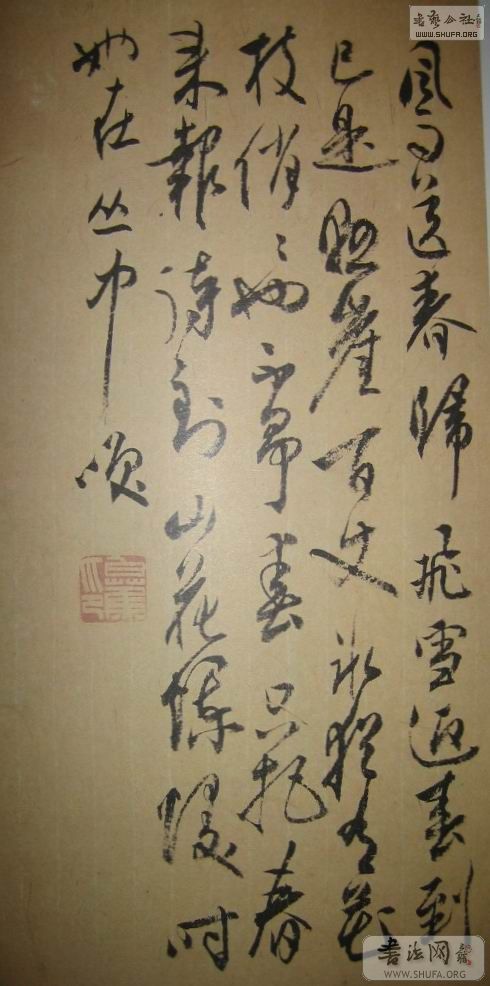 風雨送春歸飛雪迎春到
已是懸崖百丈冰猶有花
枝俏〻她不爭春只把春
来報待到山花爛漫时
她在丛中咲
書藝公社
WWW.SHUFA.ORG
書法网
WWW.SHUFA.ORG